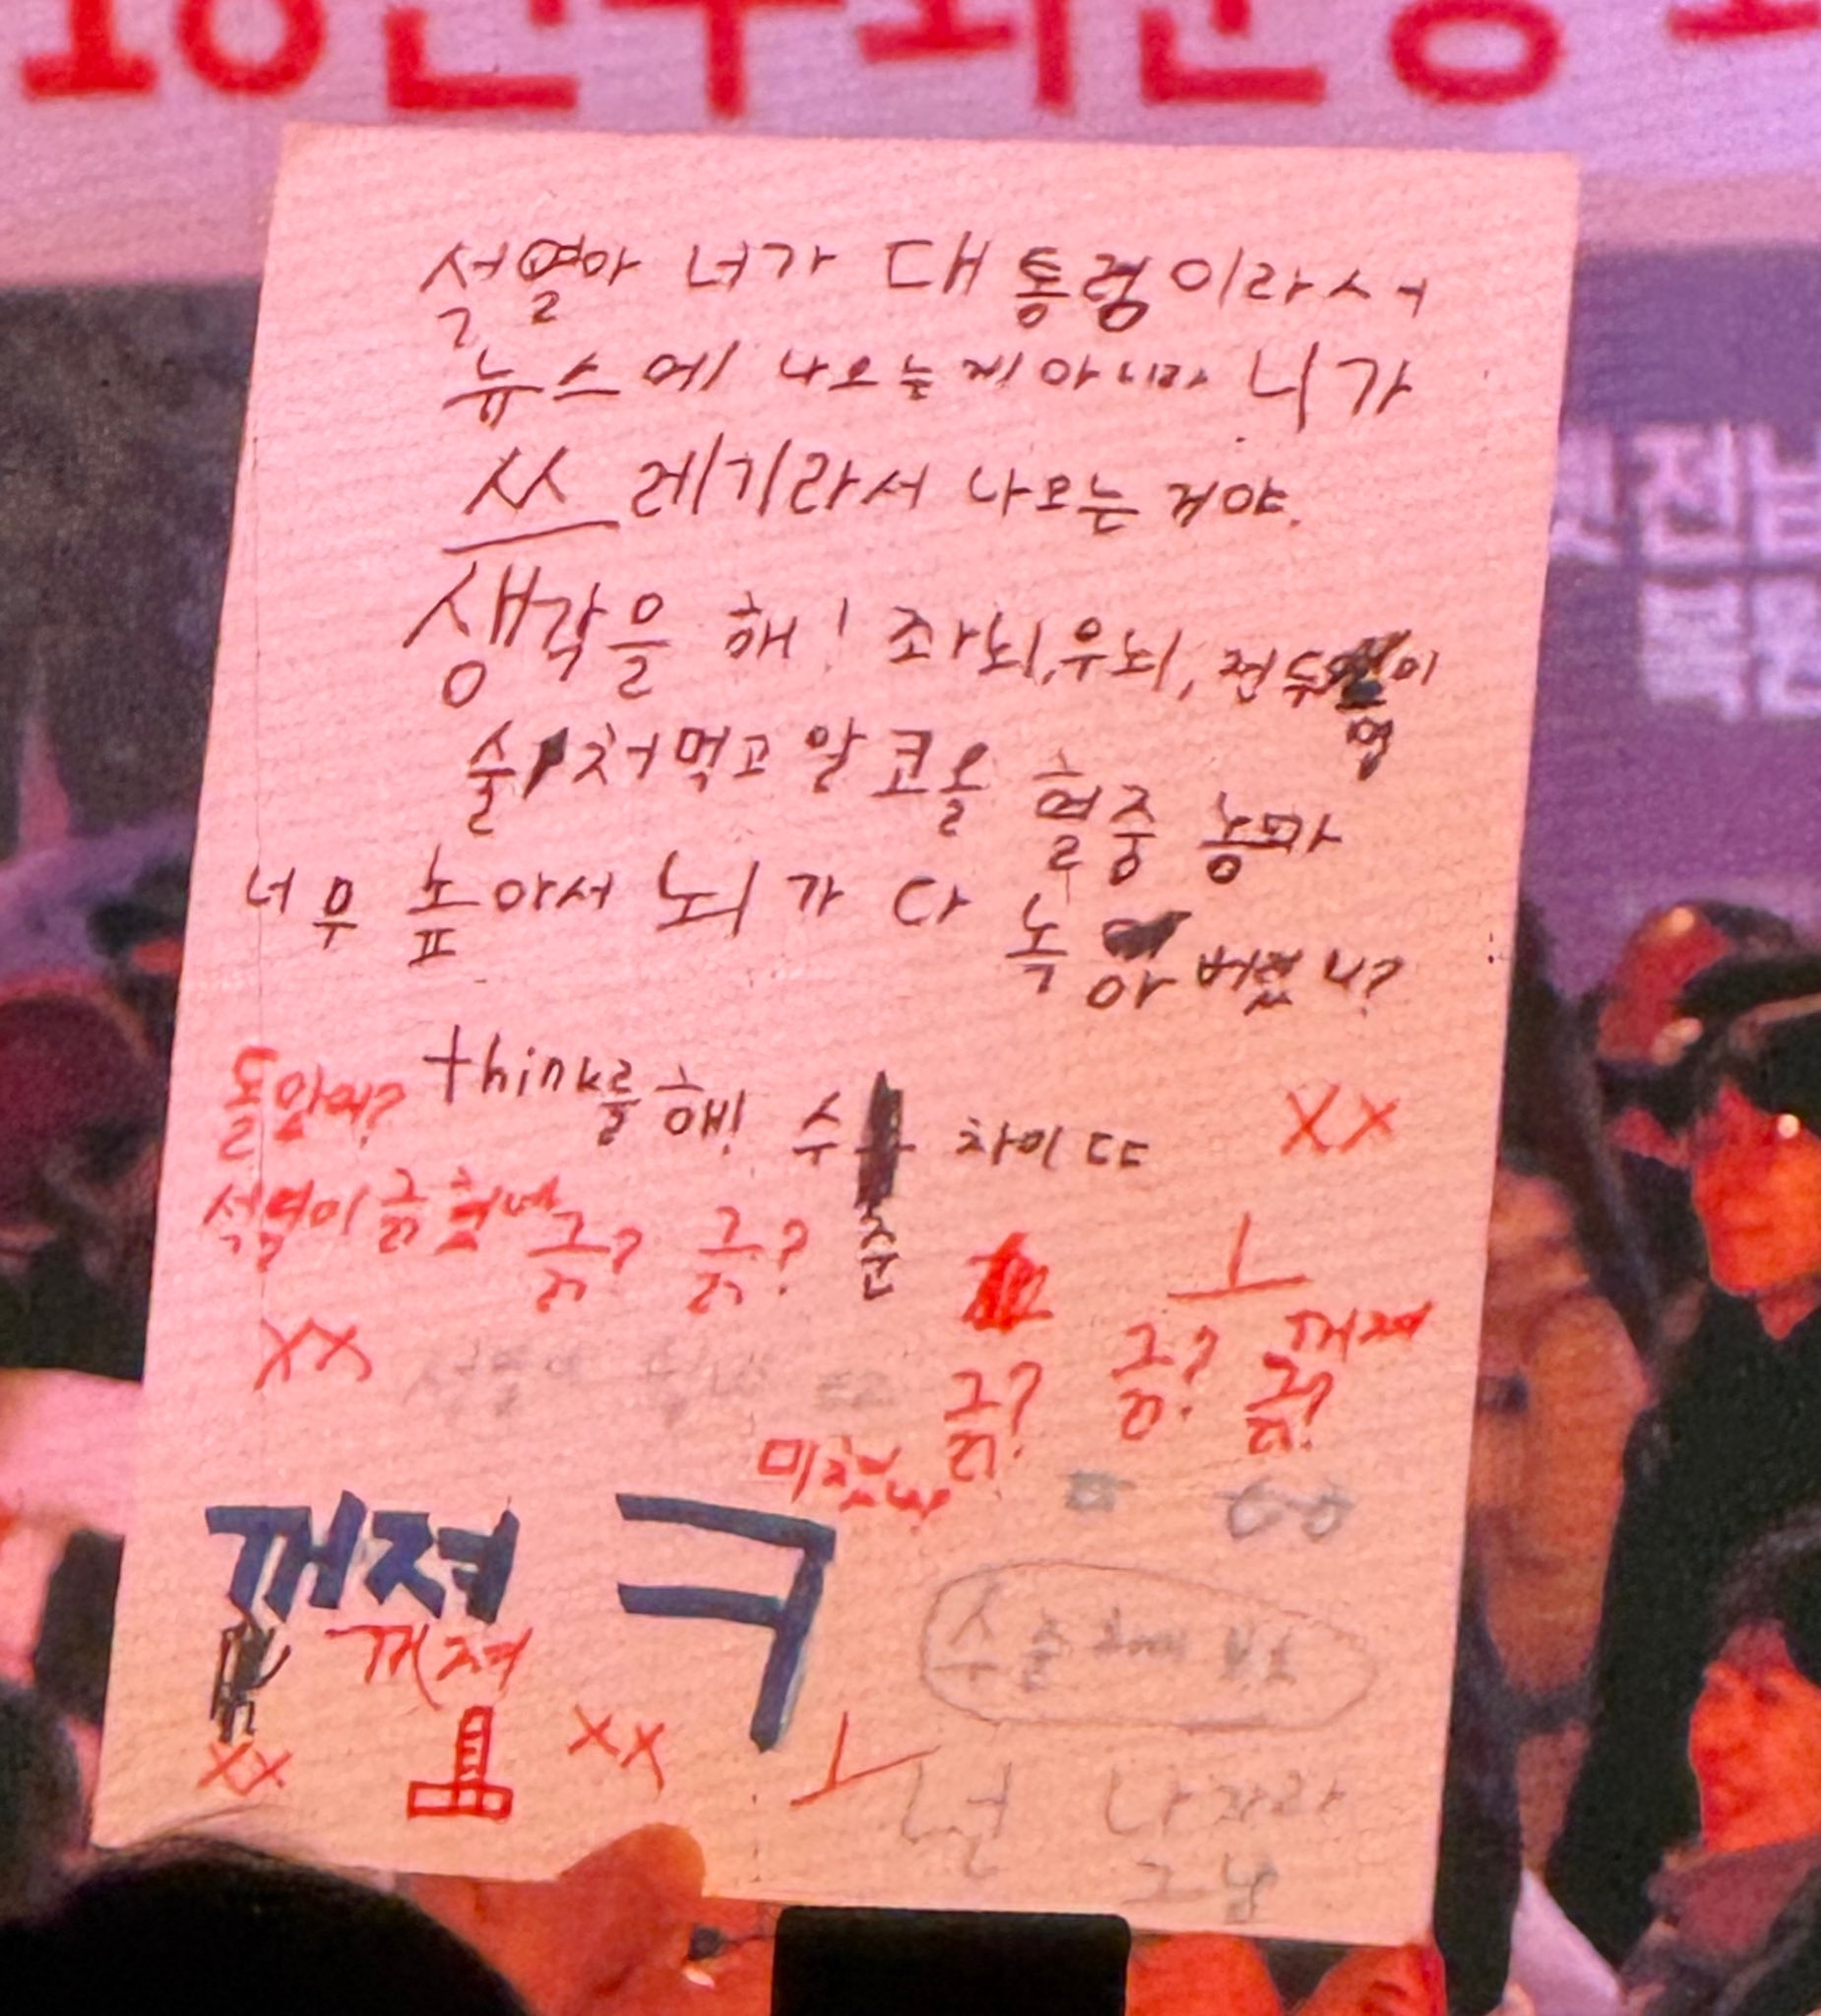 석열아 너가 대통령이라서
뉴스에 나오는게 아니라 니가
쓰레기라서 나오는 거야.
생각을 해! 좌뇌, 우뇌, 전두엽이
술 처먹고 알코올 혈중 농도가
너무 높아서 뇌가 다 녹아버렸니?
think를 해! 수준 차이 ㄷㄷ
돌았어?
XX
석열이 긁혔네
긁? 긁?
ㅗ
꺼져
긁? 긍? 긁?
XX
미쳤나
꺼져 ㅋ
꺼져
XX
XX
ㅗ
넌 나가라
그냥
전남